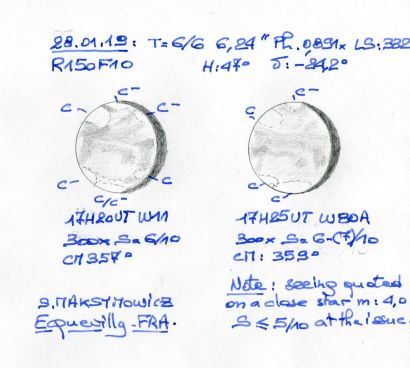 28.01.19: T=6/6 6,24" Ph. 0,891x LS:332
R150F10 H:47°
C-
C- C-
C
C- C
C/C-
C-
C-
17H20UT W11
300x S=6/10
CM 357°
17H25UT W80A
300x S=6-(7)/10
CM: 359°
S.MAKSYMOWICZ
Ecquevilly-FRA.
Note: seeing quoted
on a close star m: 4,0
S ≤ 5/10 at the issue.